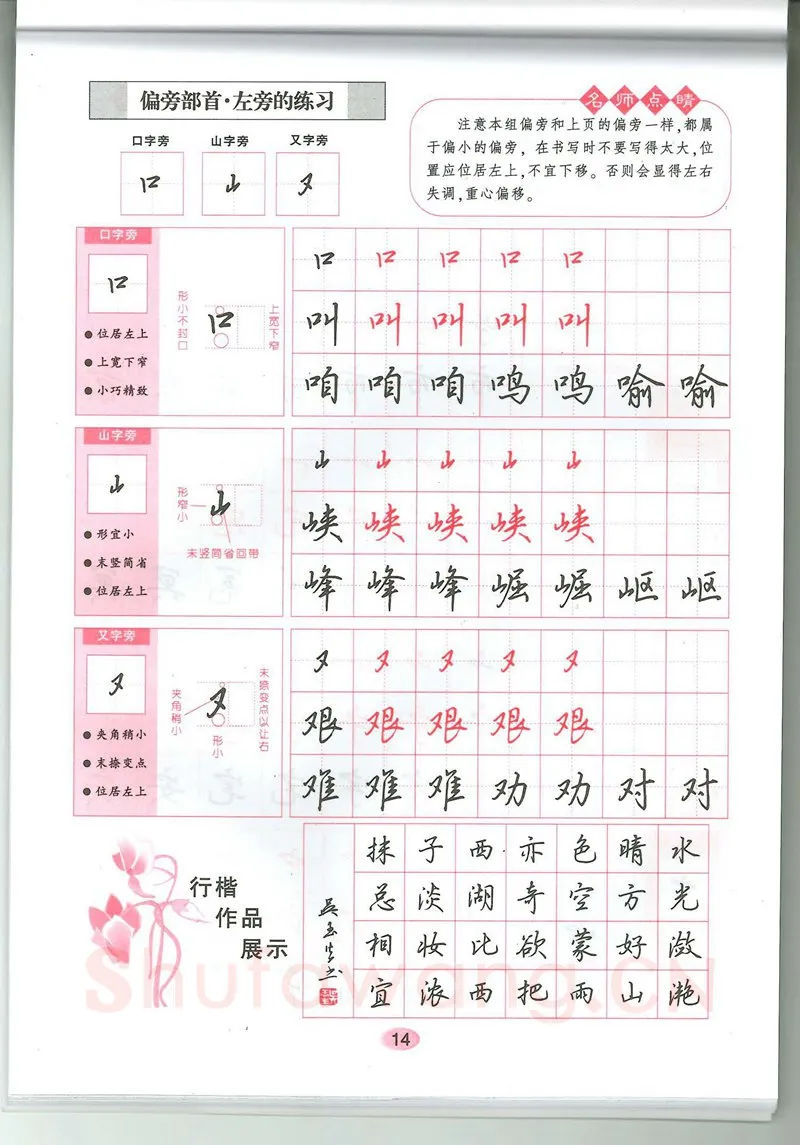 偏旁部首·左旁的练习
口字旁 山字旁 又字旁
口 山 又
名师点睛
注意本组偏旁和上页的偏旁一样,都属
于偏小的偏旁，在书写时不要写得太大,位
置应位居左上,不宜下移。否则会显得左右
失调,重心偏移。
口字旁
口
●位居左上
●上宽下窄
●小巧精致
形小不封口
口
上宽下窄
口 口 口 口 口
叫 叫 叫 叫 叫
咱 咱 咱 鸣 鸣 喻 喻
山字旁
山
●形宜小
●末竖简省
●位居左上
形窄小
山
末竖简省回带
山 山 山 山 山
峡 峡 峡 峡 峡
峰 峰 峰 崛 崛 岖 岖
又字旁
又
●夹角稍小
●末捺变点
●位居左上
夹角稍小
又
形小
末捺变点以让右
又 又 又 又 又
艰 艰 艰 艰 艰
难 难 难 劝 劝 对 对
行楷
作品
展示
水光潋滟
晴方好山
色空蒙雨
亦奇欲把
西湖比西
子淡妆浓
抹总相宜
吴玉生书
Shufawang.CN
14